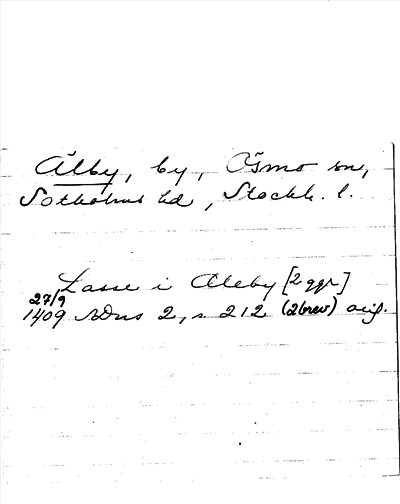 Älby, by, Ösmo sn,
Sotholms hd, Stockh. l.
Lasse i Aleby [2 ggr]
27/9
1409 SDns 2, s 212 (2 brev) orig.